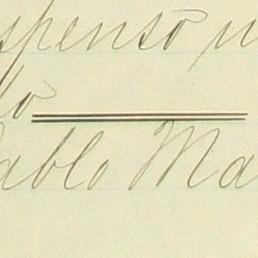 spenso
lo
ablo Ma